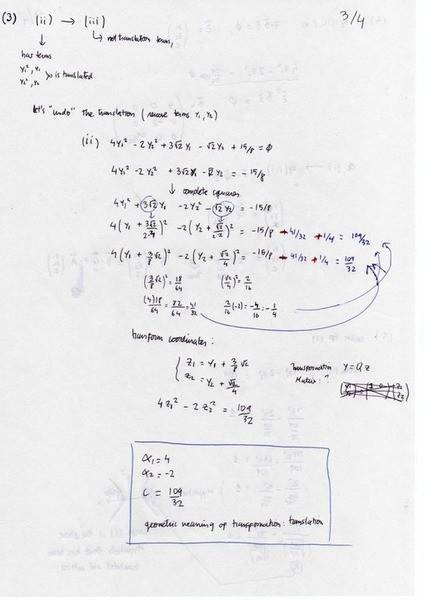 3/4
(3) (ii) → (iii)
↳ not translation terms,
has terms
y₁², y₁
y₂², y₂ > is translated
let's "undo" the translation (remove terms y₁, y₂)
(ii) 4y₁² - 2y₂² + 3√2 y₁ - √2 y₂ + 15/8 = 0
4y₁² - 2y₂² + 3√2 y₁ - √2 y₂ = -15/8
↓ complete squares
4y₁² + 3√2 y₁ - 2y₂² - √2 y₂ = -15/8
4(y₁ + 3√2/2·4)² - 2(y₂ + √2/2·2)² = -15/8 + 41/32 + 1/4 = 109/32
4(y₁ + 3/8 √2)² - 2(y₂ + √2/4)² = -15/8 + 41/32 + 1/4 = 109/32
(3/8 √2)² = 18/64 (√2/4)² = 2/16
(4)18/64 = 82/64 = 41/32 2/16 (-2) = -4/16 = -1/4
transform coordinates:
{ z₁ = y₁ + 3/8 √2
z₂ = y₂ + √2/4
Transformation y = Q z
Matrix: ?
4z₁² - 2z₂² = 109/32
α₁ = 4
α₂ = -2
c = 109/32
geometric meaning of transformation: translation